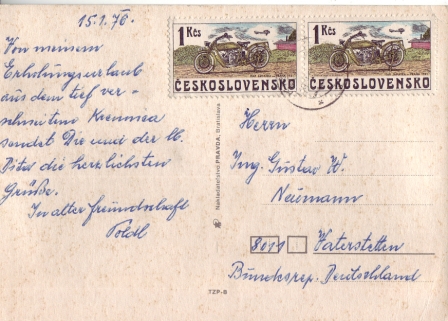 15.1.76.
Von meinem
Erholungsurlaub
aus dem tief ver-
schneiten
sendet Dir und der lb.
die herzlichsten
Grüße.
In alter Freundschaft
Poldl
1 Kčs
ČESKOSLOVENSKO
1 Kčs
ČESKOSLOVENSKO
Nakladatelstvo PRAVDA, Bratislava
Herrn
Ing. Gustav W.
Neumann
8011 Vaterstetten
Bundesrep. Deutschland
TZP-B